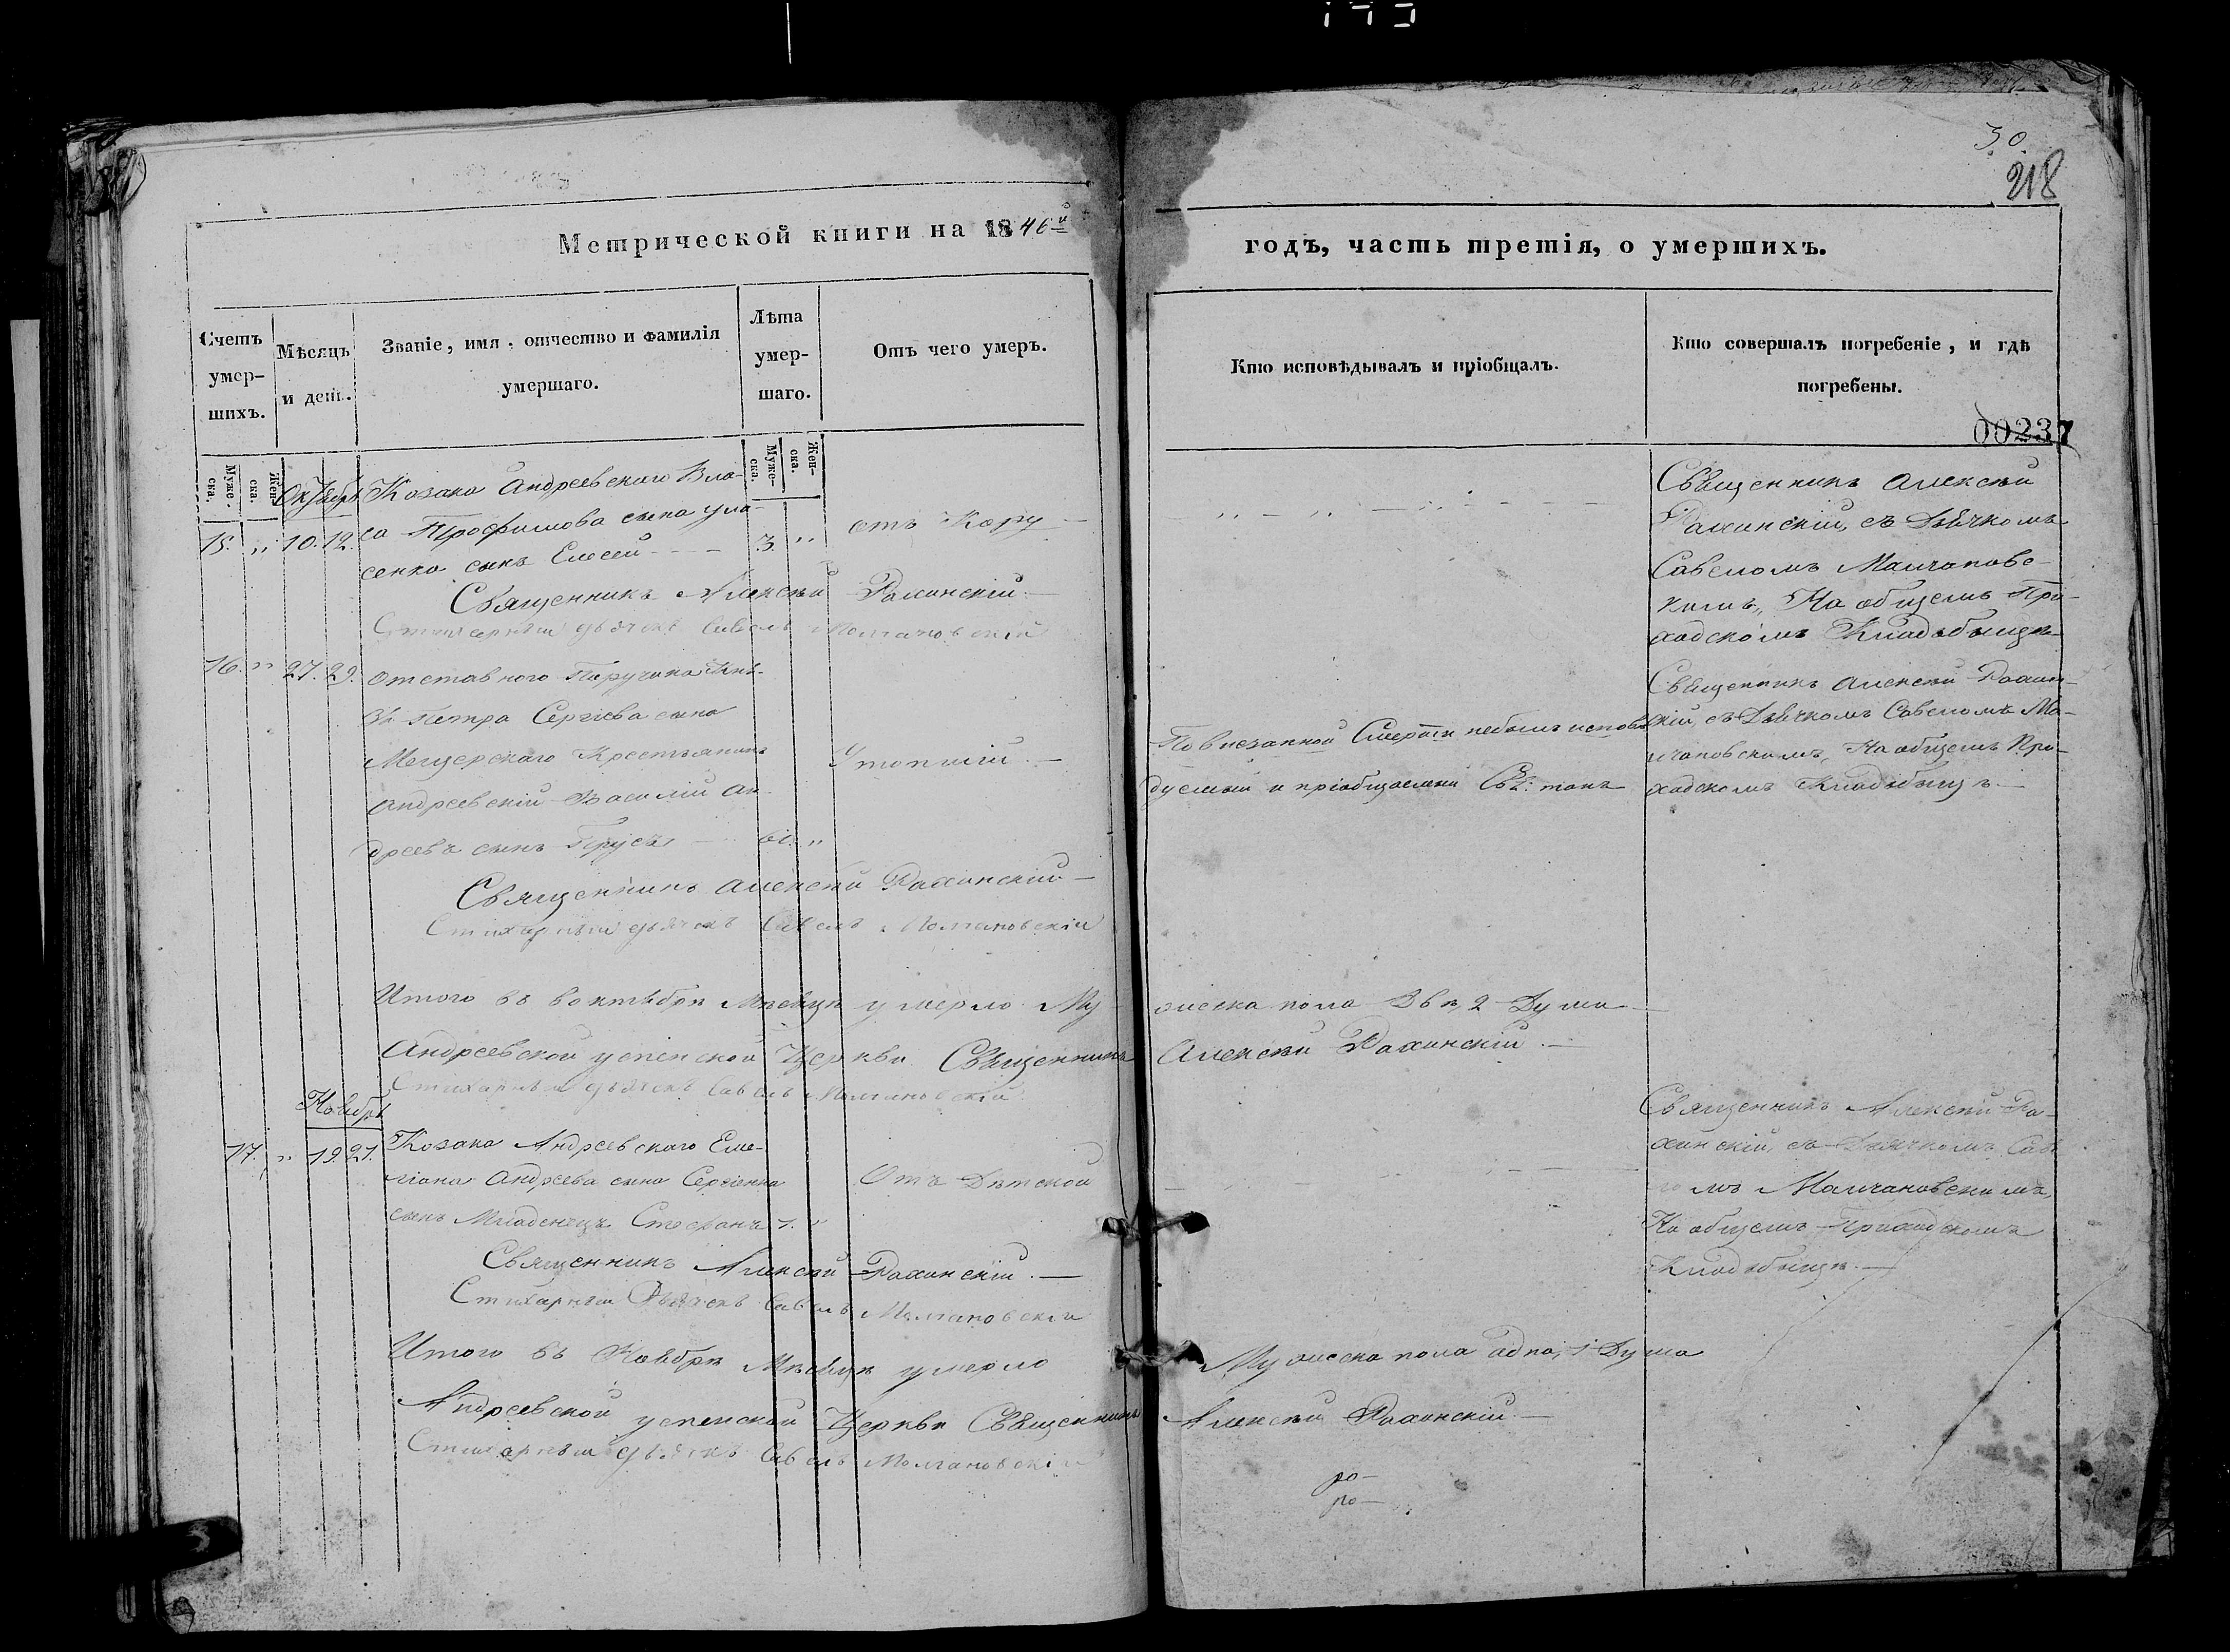 30
218
Метрической книги на 1846й
годъ, часть третія, о умершихъ.
Счетъ умер-шихъ.
Мѣсяцъ и день.
Званіе, имя, отчество и фамилія умершаго.
Лѣта умер-шаго.
Отъ чего умеръ.
Кто исповѣдывалъ и пріобщалъ.
Кто совершалъ погребеніе, и гдѣ погребены.
00237
Муже-ска.
Жен-ска.
Муже-ска.
Жен-ска.
Октября
15. " 10. 12.
Козака Андреевского Вла-
са Трофимова сына ула-
сенка сынъ Елесей
3. "
отъ Кору
Священникъ Алексѣй
Рахинскій, съ Дьячкомъ
Савеломъ Малчановс-
кимъ, На общемъ При-
ходскомъ Кладьбищѣ
Священникъ Алексѣй Рахинскій
Стихарный дьячекъ Савелъ Молчановскій
16. " 27. 29.
Отставного Поручика Кня-
зя Петра Сергіева сына
Мещерскаго Крестьянинъ
Андреевскій Василій Ан-
дреевъ сынъ
61. "
Утопшій
По внезапной Смерти небылъ исповѣ-
дуемый и пріобщаемый Св: танъ
Священникъ Алексѣй Рахин-
скій, съ Дьячкомъ Савеломъ Мо-
лчановскимъ, На общемъ При-
ходскомъ Кладьбищѣ
Священникъ Алексѣй Рахинскій
Стихарный дьячекъ Савелъ Молчановскій
Итого въ Октябрѣ Мѣсяцѣ умерло Му-
жеска пола Двѣ, 2 Души
Андреевской успенской Церкви Священникъ
Алексѣй Рахинскій
Стихарный дьячекъ Савелъ Молчановскій
Ноября
17. " 19. 21.
Козака Андреевскаго Еме-
ліана Андреева сына Сергіенка
сынъ Младенецъ Стефанъ 1. "
Отъ Дѣтской
Священникъ Алексѣй Ра-
хинскій, съ Дьячкомъ Сав
ломъ Малчановскимъ,
На общемъ Приходскомъ
Кладьбищѣ
Священникъ Алексѣй Рахинскій
Стихарный Дьячекъ Савелъ Молчановскій
Итого въ Ноябрѣ Мѣсяцѣ умерло
Мужеска пола одна, 1 Душа
Андреевской успенской Церкви Священникъ
Алексѣй Рахинскій
Стихарный дьячекъ Савелъ Молчановскій